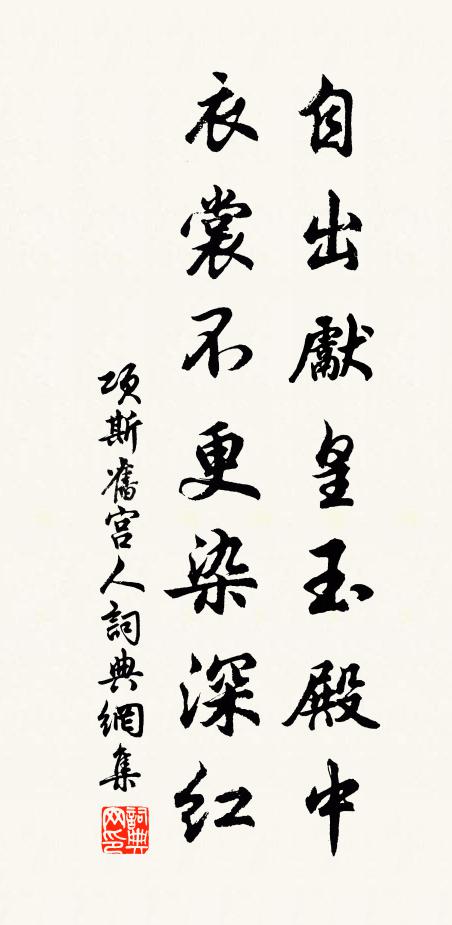 自出獻皇玉殿中
衣裳不更染深紅
項斯舊宮人詞典網集
詞典
网印